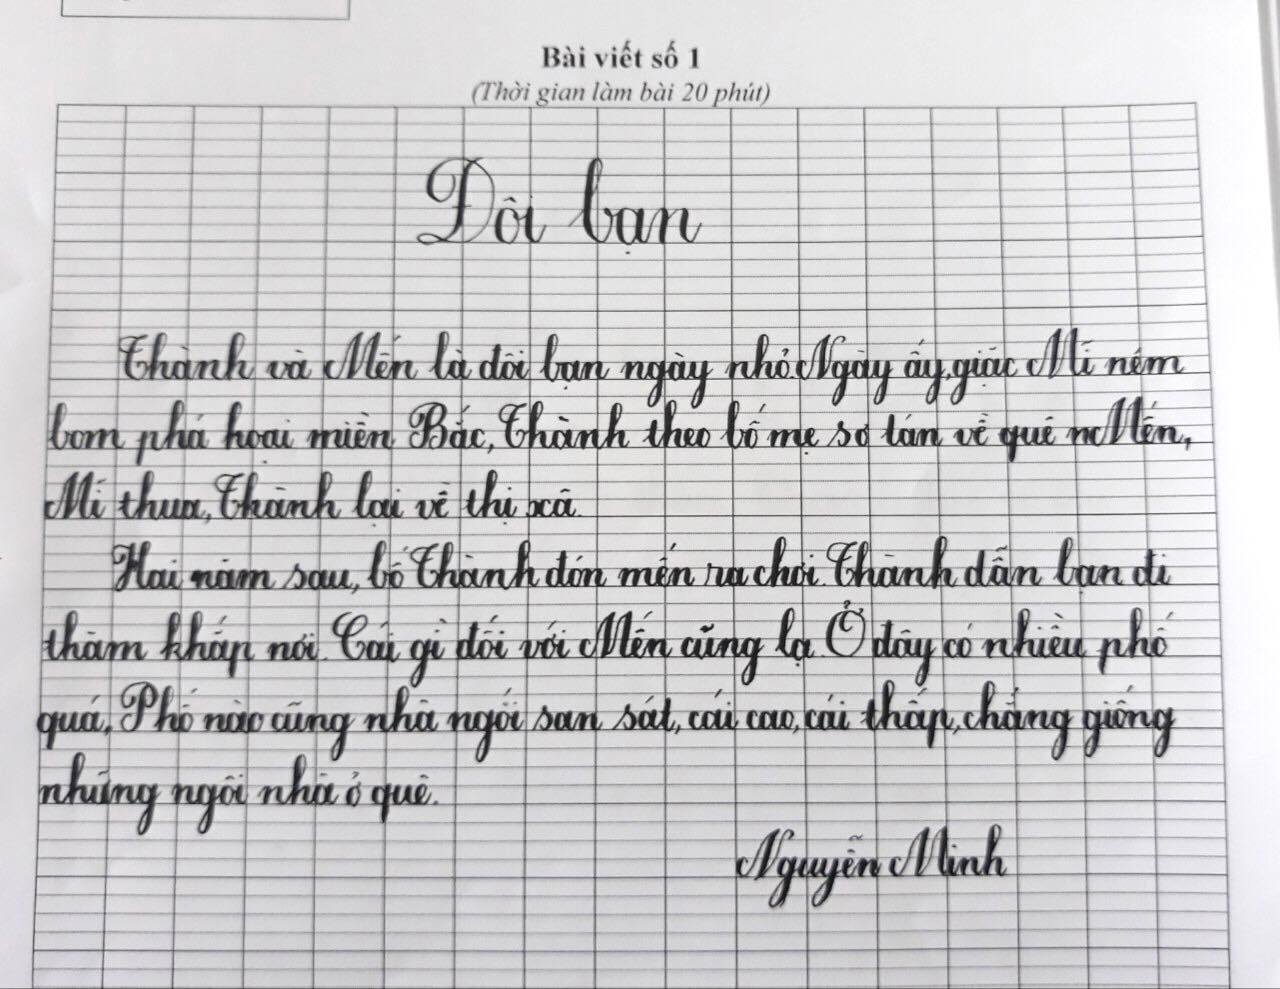 Bài viết số 1
(Thời gian làm bài 20 phút)
Đôi bạn
Thành và Mến là đôi bạn ngày nhỏ. Ngày ấy, giặc Mĩ ném
bom phá hoại miền Bắc, Thành theo bố mẹ sơ tán về quê Mến,
Mĩ thua, Thành lại về thị xã.
Hai năm sau, bố Thành đón mến ra chơi. Thành dẫn bạn đi
thăm khắp nơi. Cái gì đối với Mến cũng lạ. Ở đây có nhiều phố
quá, Phố nào cũng nhà ngói san sát, cái cao, cái thấp, chẳng giống
những ngôi nhà ở quê.
Nguyễn Minh